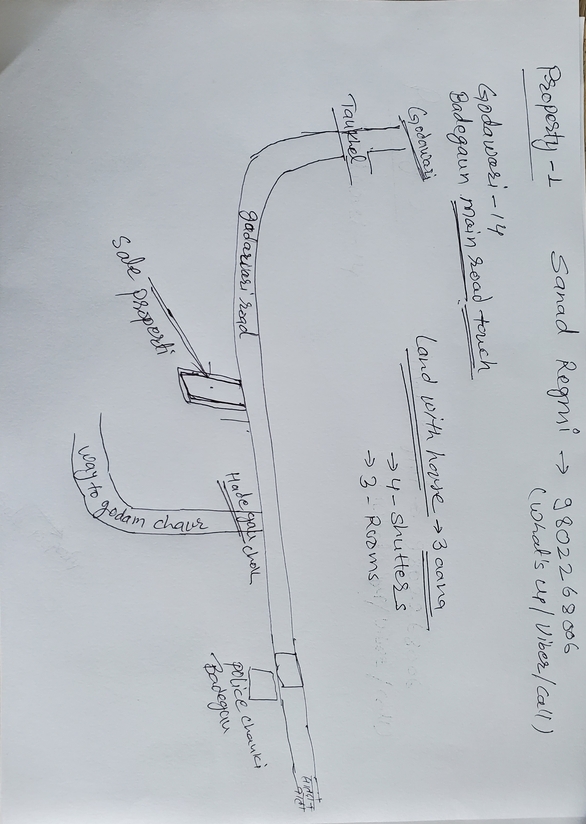 Property-1
Sanad Regmi → 9802268006
(What's up/Viber/Call)
Godawari-14
Badegaun main road touch
Land with house → 3 aana
→ 4-Shutters
→ 3-Rooms
Godawari
Taukhel
godarwari road
Sale properti
Hadegau chok
way to godam chaur
police chauki
Badegau